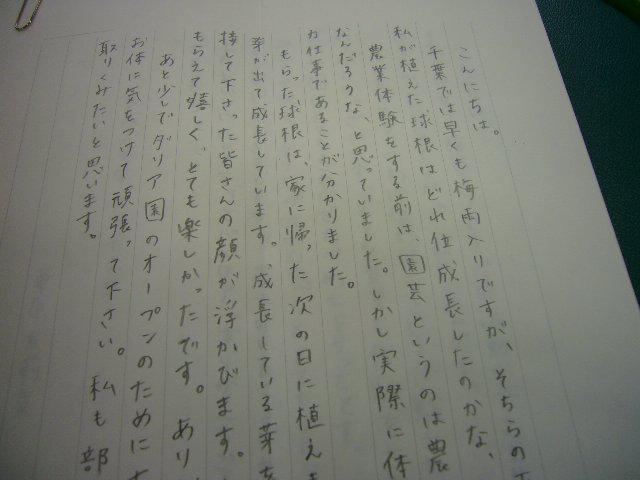 こんにちは。
千葉では早くも梅雨入りですが、そちらの
私が植えた球根はどれ位成長したのかな、
農業体験をする前は、園芸というのは農
なんだろうな、と思っていました。しかし実際に体
力仕事であることが分かりました。
もらった球根は、家に帰った次の日に植えま
芽が出て成長しています。成長している芽を
接して下さった皆さんの顔が浮かびます。
もらえて嬉しく、とても楽しかったです。あり
あと少しでダリア園のオープンのためにす
お体に気をつけて頑張って下さい。私も部
取りくみたいと思います。